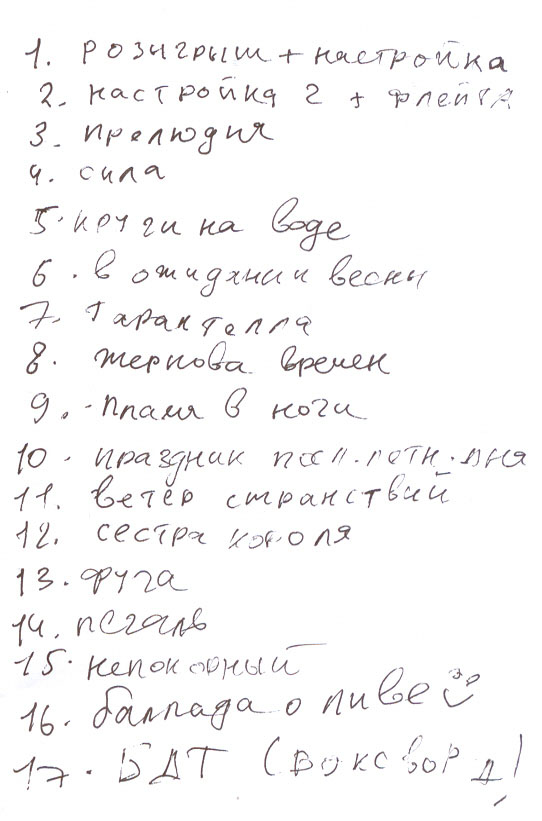 1. розыгрыш + настройка
2. настройка 2 + флейта
3. прелюдия
4. сила
5. круги на воде
6. в ожидании весны
7. Тарантелла
8. жернова времен
9. пламя в ночи
10. праздник посл. летн. дня
11. ветер странствий
12. сестра короля
13. фуга
14. печаль
15. непокорный
16. баллада о пиве
17. БДТ (Воксворд)